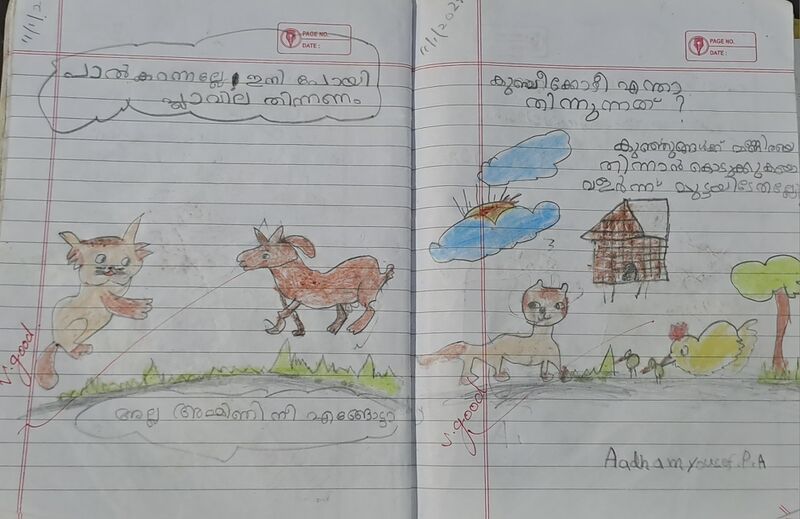 11/1/2
PAGE NO.
DATE :
പാൽകറന്നല്ലേ ഇനി പോയി
പ്ലാവില തിന്നണം
അല്ല അമ്മിണി നീ എങ്ങോട്ടാ
v.good
11/1/202
PAGE NO.
DATE :
കുഞ്ചിക്കോഴീ എന്താ
തിന്നുന്നത് ?
കുഞ്ഞുങ്ങൾക്ക്
തിന്നാൻ കൊടുക്കുകയാ
വളർന്ന് മുട്ടയിടേണ്ടല്ലേ
v.good
Aadham yousef.P.A